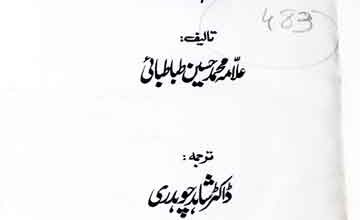 483
تالیف:
علامہ محمد حسین طباطبائی
ترجمہ:
ڈاکٹر شاہد چوہدری